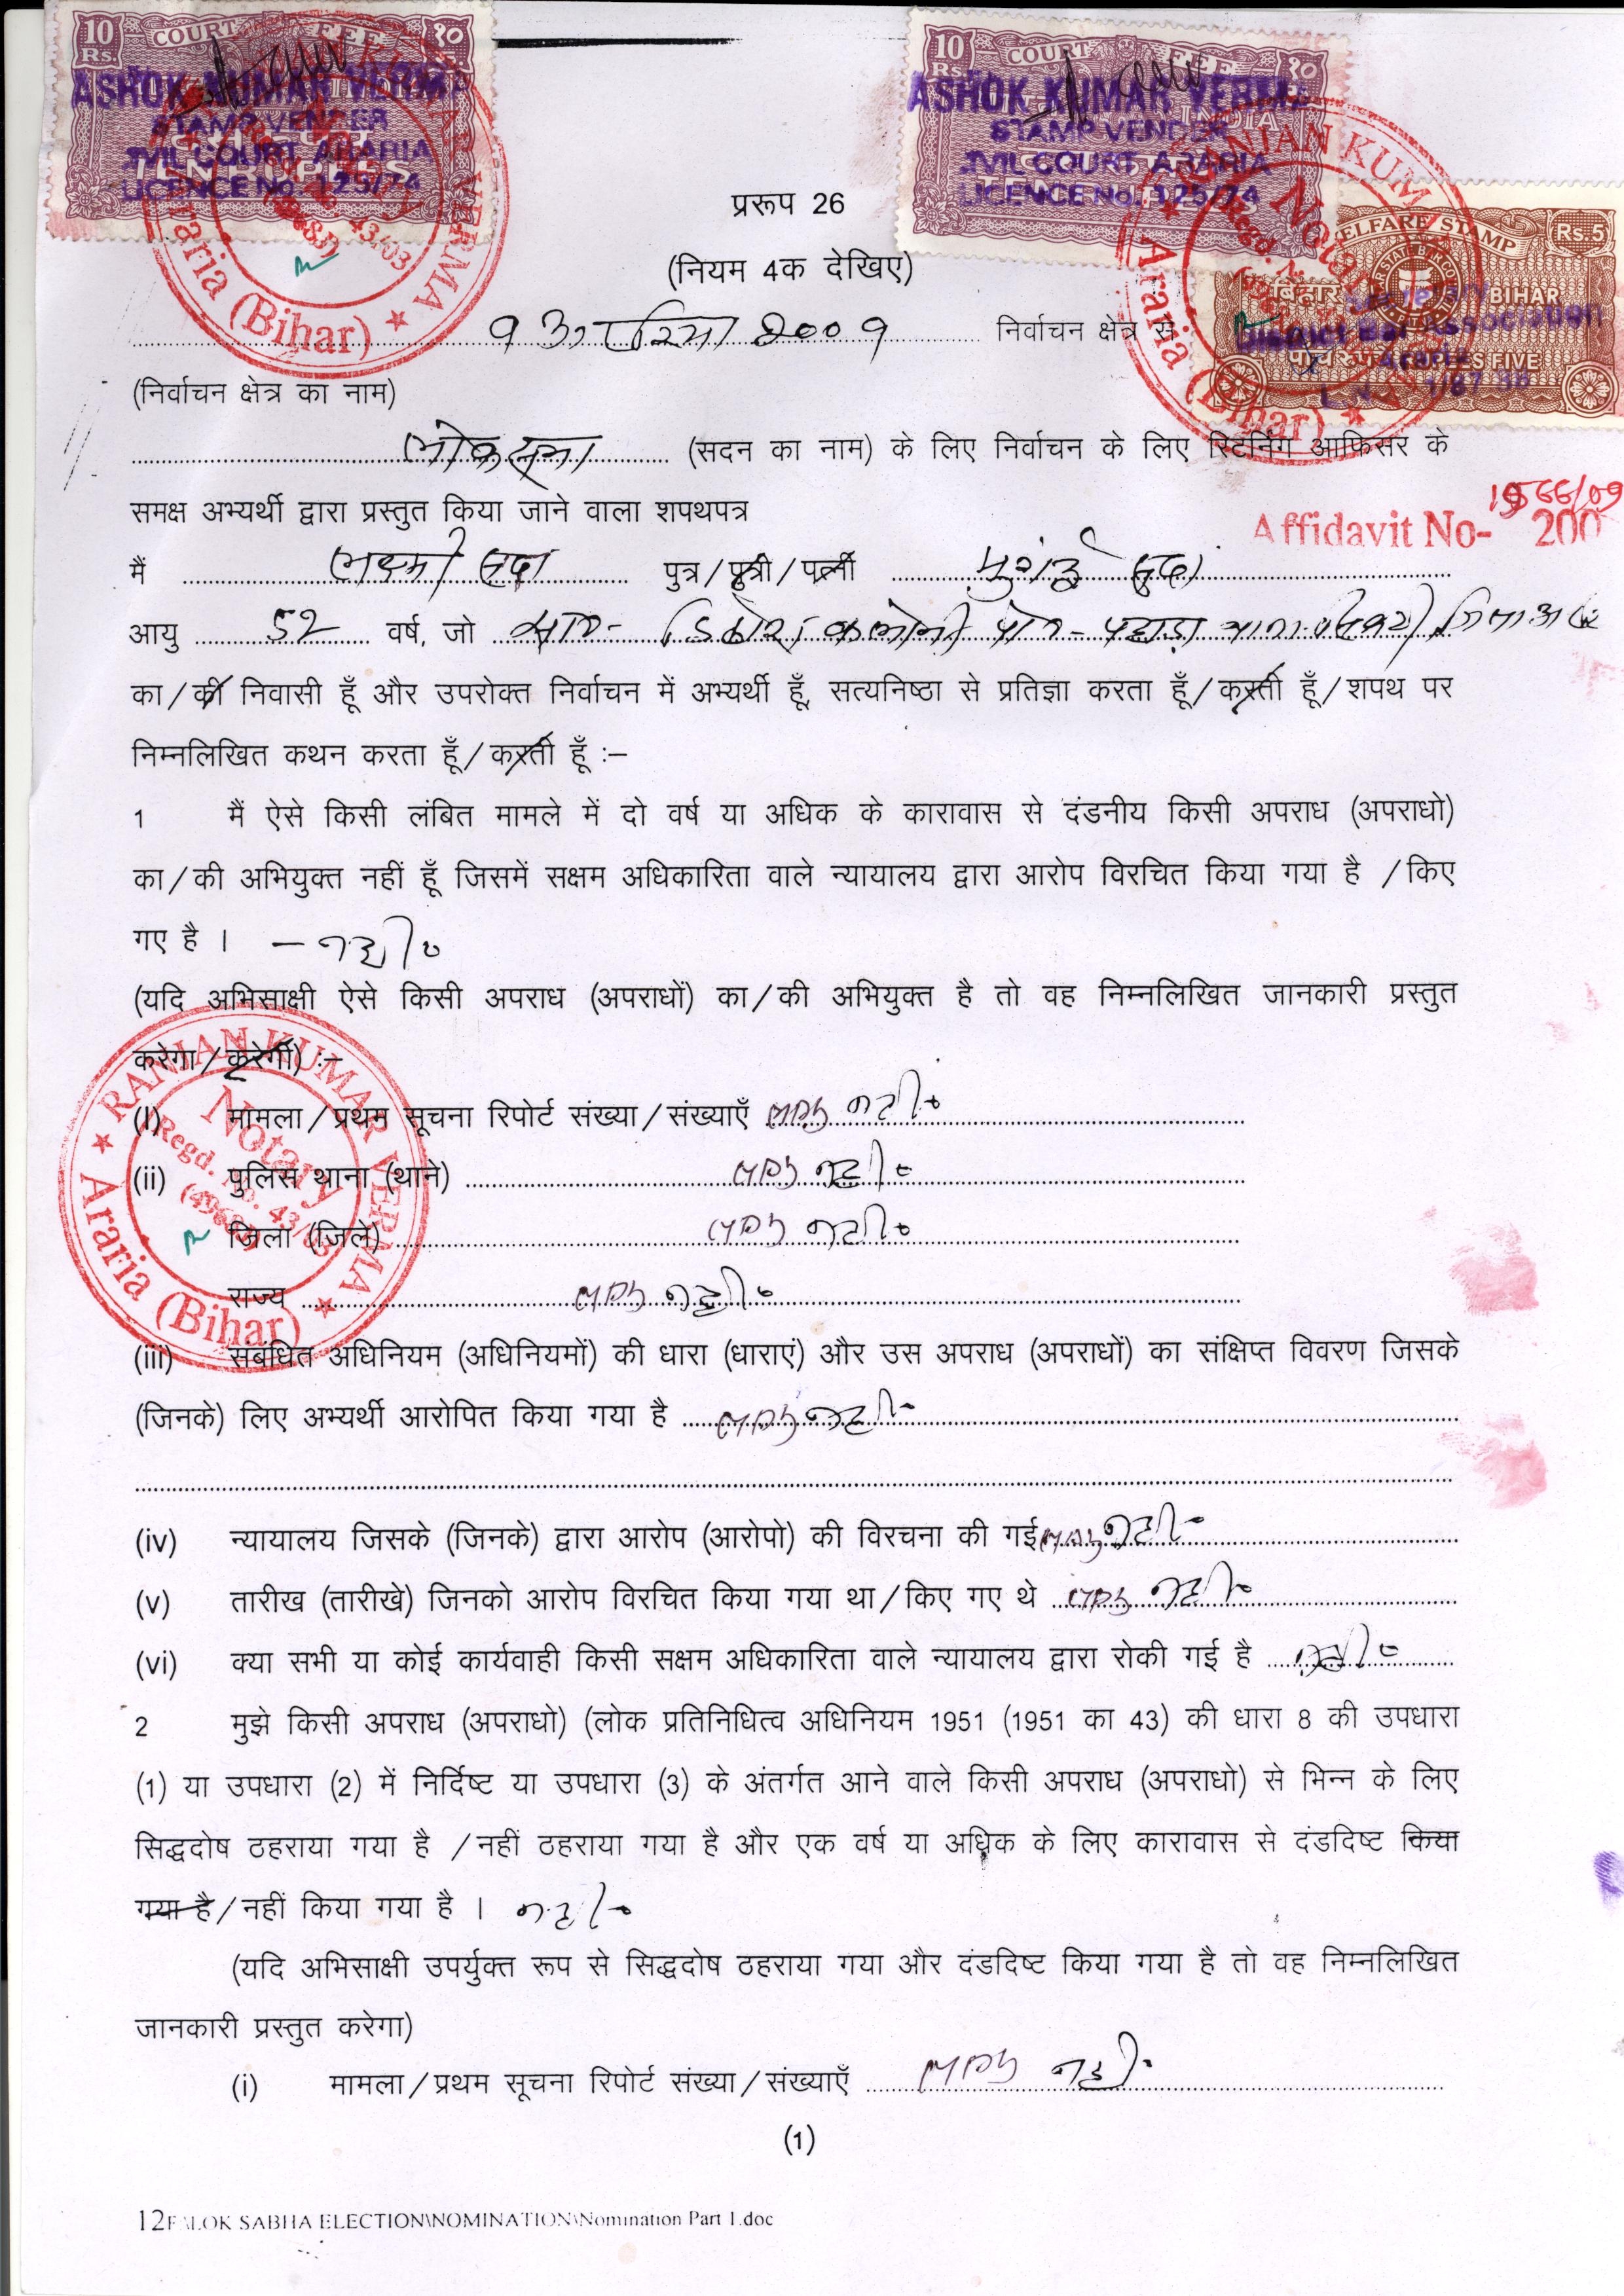 10 COURT FEE १०
Rs.
INDIA
ASHOK KUMAR VERMA
STAMP VENDER
CIVIL COURT ARARIA
LICENCE No. 125/74
10 COURT FEE १०
Rs.
INDIA
ASHOK KUMAR VERMA
STAMP VENDER
CIVIL COURT ARARIA
LICENCE No. 125/74
WELFARE STAMP Rs.5
बिहार BIHAR
District Bar Association
Araria
RANJAN KUMAR VERMA
Notary
Araria (Bihar)
प्ररूप 26
(नियम 4क देखिए)
9 अररिया 2009 निर्वाचन क्षेत्र से
(निर्वाचन क्षेत्र का नाम)
लोक सभा (सदन का नाम) के लिए निर्वाचन के लिए रिटर्निंग आफिसर के
समक्ष अभ्यर्थी द्वारा प्रस्तुत किया जाने वाला शपथपत्र
Affidavit No- 200
मैं लक्ष्मी सदा पुत्र/पुत्री/पत्नी मुंगाई सदा
आयु 52 वर्ष, जो
का/की निवासी हूँ और उपरोक्त निर्वाचन में अभ्यर्थी हूँ, सत्यनिष्ठा से प्रतिज्ञा करता हूँ/करती हूँ/शपथ पर
निम्नलिखित कथन करता हूँ/करती हूँ :–
1 मैं ऐसे किसी लंबित मामले में दो वर्ष या अधिक के कारावास से दंडनीय किसी अपराध (अपराधो)
का/की अभियुक्त नहीं हूँ जिसमें सक्षम अधिकारिता वाले न्यायालय द्वारा आरोप विरचित किया गया है /किए
गए है । – नही
(यदि अभिसाक्षी ऐसे किसी अपराध (अपराधों) का/की अभियुक्त है तो वह निम्नलिखित जानकारी प्रस्तुत
करेगा/करेगी) :–
RANJAN KUMAR VERMA
Notary
Regd. No. 43/03
Araria (Bihar)
(i) मामला/प्रथम सूचना रिपोर्ट संख्या/संख्याएँ लागु नही
(ii) पुलिस थाना (थाने) लागु नही
जिला (जिले) लागु नही
राज्य लागु नही
(iii) संबंधित अधिनियम (अधिनियमों) की धारा (धाराएं) और उस अपराध (अपराधों) का संक्षिप्त विवरण जिसके
(जिनके) लिए अभ्यर्थी आरोपित किया गया है लागु नही
(iv) न्यायालय जिसके (जिनके) द्वारा आरोप (आरोपो) की विरचना की गई लागु नही
(v) तारीख (तारीखे) जिनको आरोप विरचित किया गया था/किए गए थे लागु नही
(vi) क्या सभी या कोई कार्यवाही किसी सक्षम अधिकारिता वाले न्यायालय द्वारा रोकी गई है नही
2 मुझे किसी अपराध (अपराधो) (लोक प्रतिनिधित्व अधिनियम 1951 (1951 का 43) की धारा 8 की उपधारा
(1) या उपधारा (2) में निर्दिष्ट या उपधारा (3) के अंतर्गत आने वाले किसी अपराध (अपराधो) से भिन्न के लिए
सिद्धदोष ठहराया गया है /नहीं ठहराया गया है और एक वर्ष या अधिक के लिए कारावास से दंडदिष्ट किया
गया है/नहीं किया गया है । नही
(यदि अभिसाक्षी उपर्युक्त रूप से सिद्धदोष ठहराया गया और दंडदिष्ट किया गया है तो वह निम्नलिखित
जानकारी प्रस्तुत करेगा)
(i) मामला/प्रथम सूचना रिपोर्ट संख्या/संख्याएँ लागु नही
(1)
12F:\LOK SABHA ELECTION\NOMINATION\Nomination Part 1.doc